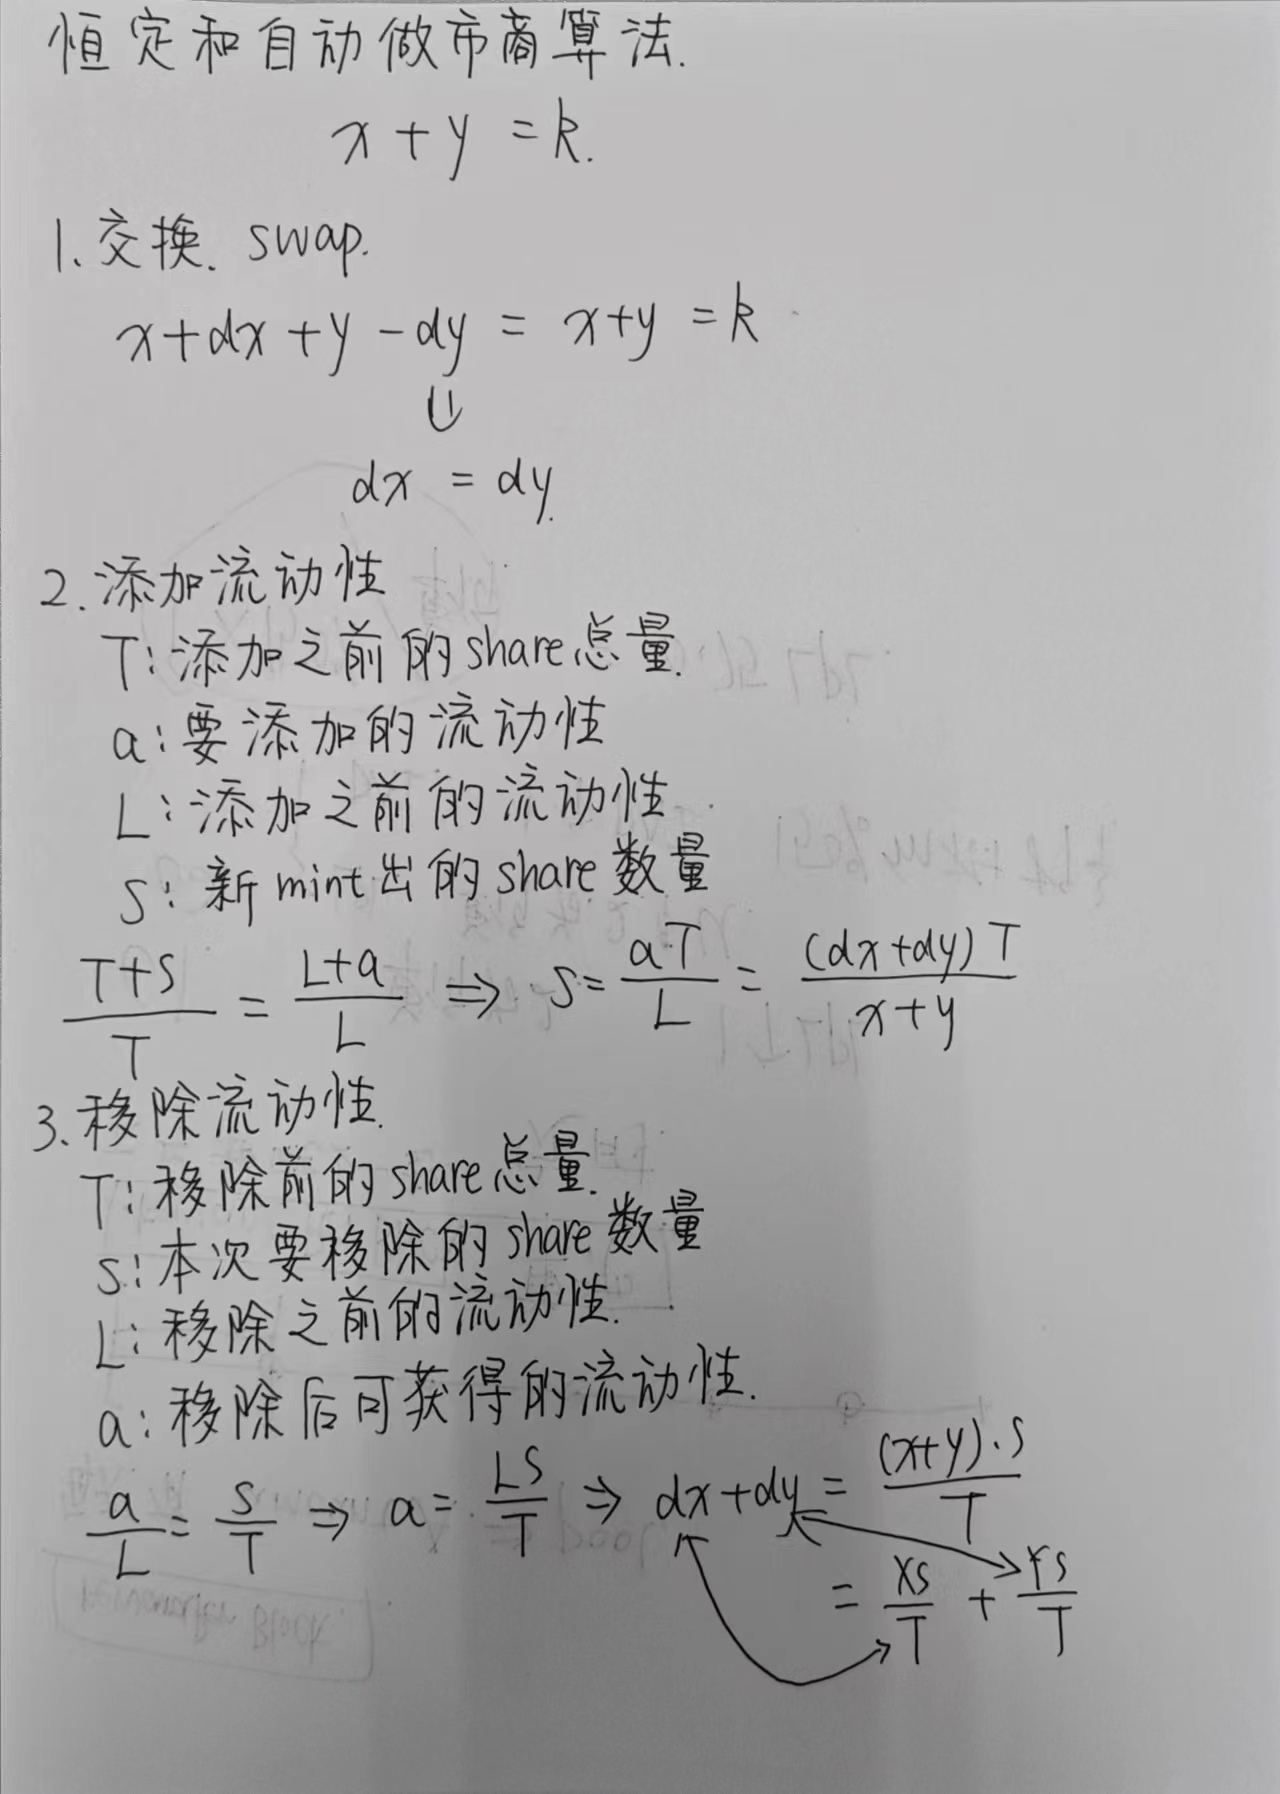 恒定和自动做市商算法.
x + y = k.
1. 交换. swap.
x+dx+y-dy = x+y = k
⇓
dx = dy.
2. 添加流动性
T: 添加之前的share总量.
a: 要添加的流动性
L: 添加之前的流动性
S: 新mint出的share数量
(T+S)/T = (L+a)/L ⇒ S = a·T/L = (dx+dy)T/(x+y)
3. 移除流动性.
T: 移除前的share总量.
S: 本次要移除的share数量
L: 移除之前的流动性.
a: 移除后可获得的流动性.
a/L = S/T ⇒ a = LS/T ⇒ dx+dy = (x+y)·S/T
= XS/T + YS/T